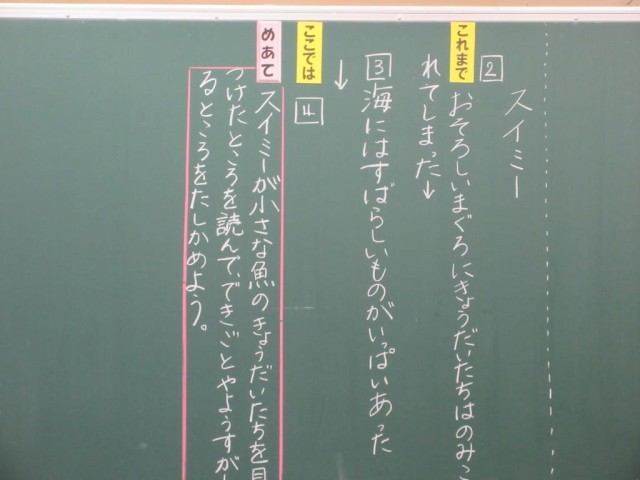 スイミー
これまで
2
おそろしいまぐろにきょうだいたちはのみこ
れてしまった↓
3
海にはすばらしいものがいっぱいあった
↓
ここでは
4
めあて
スイミーが小さな魚のきょうだいたちを見
つけたところを読んで、できごとやようすが
るところをたしかめよう。